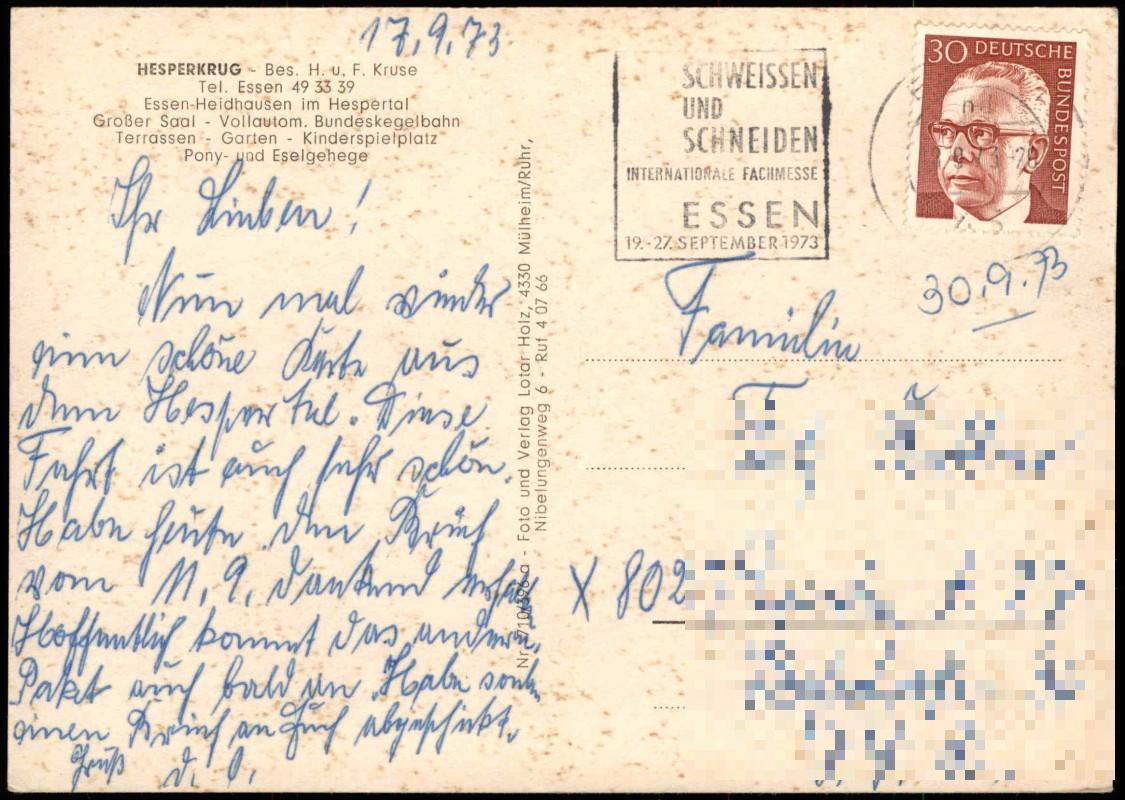 17.9.73
HESPERKRUG - Bes. H. u. F. Kruse
Tel. Essen 49 33 39
Essen-Heidhausen im Hespertal
Großer Saal - Vollautom. Bundeskegelbahn
Terrassen - Garten - Kinderspielplatz
Pony- und Eselgehege
Ihr Lieben!
Nun mal wieder
eine schöne Karte aus
dem Hespertal. Diese
Fahrt ist auch sehr schön.
Habe heute den Brief
vom 11.9. dankend
Hoffentlich kommt das andere
Paket auch bald an. Habe soeben
einen Brief an Euch abgeschickt.
Gruß
d. O.
Nr. 710/396a - Foto und Verlag Lotar Holz, 4330 Mülheim/Ruhr,
Nibelungenweg 6 - Ruf 4 07 66
SCHWEISSEN
UND
SCHNEIDEN
INTERNATIONALE FACHMESSE
ESSEN
19.-27. SEPTEMBER 1973
30 DEUTSCHE
BUNDESPOST
30.9.73
Familie
X 802